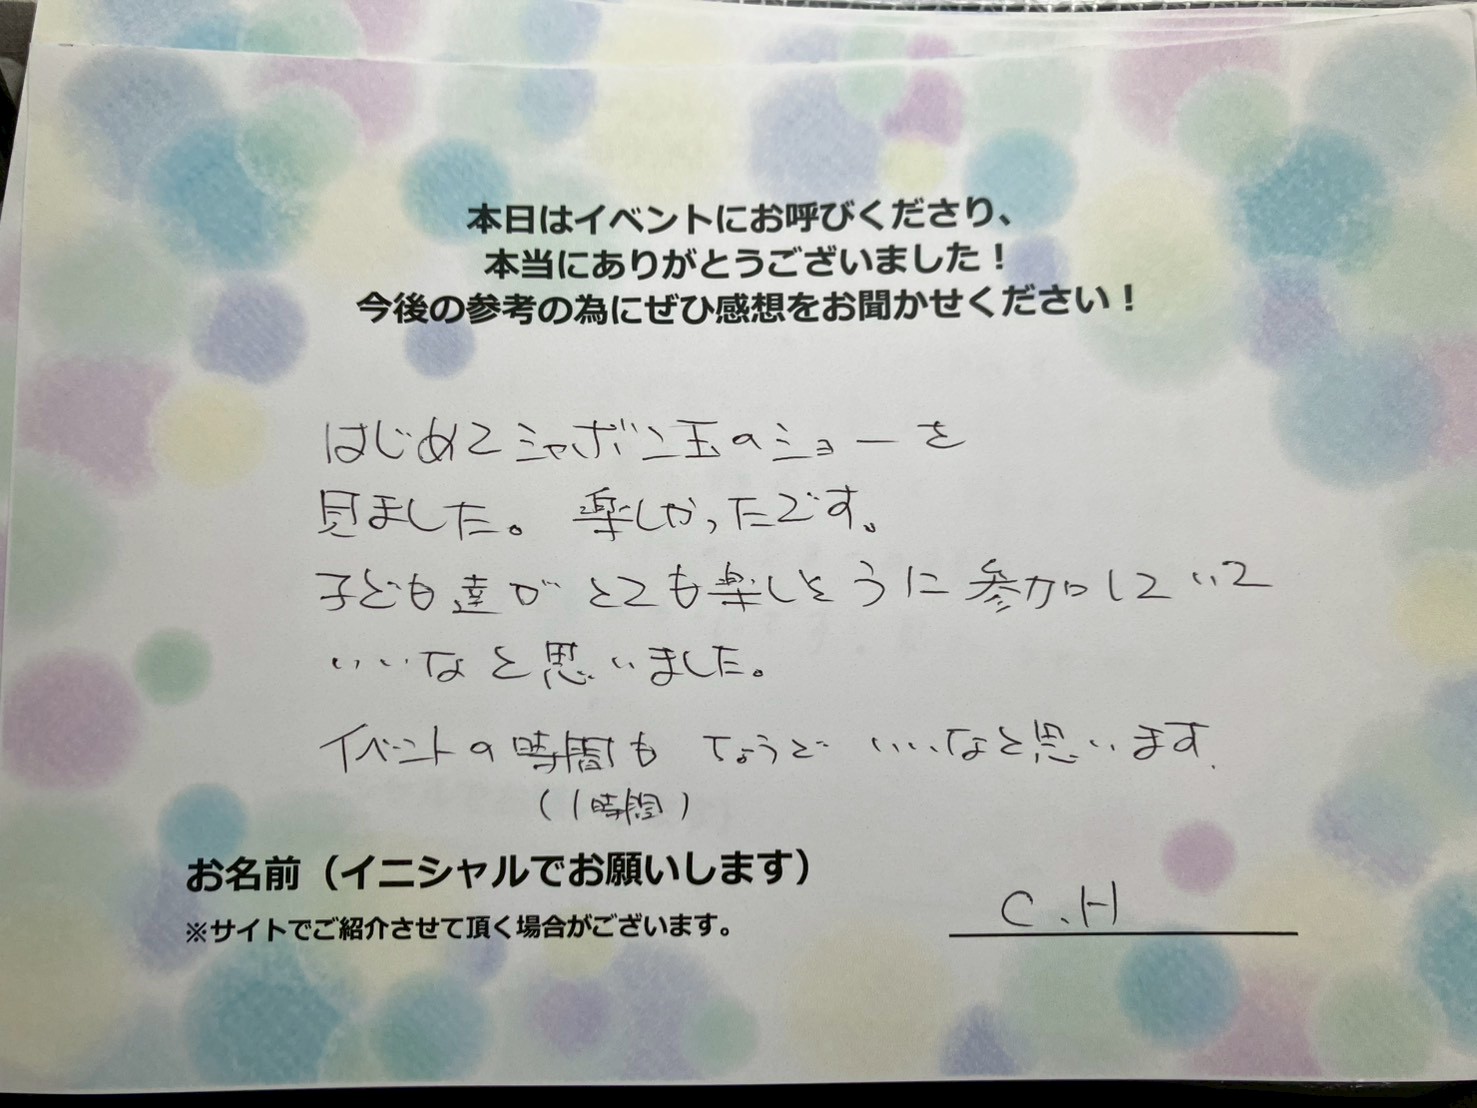 本日はイベントにお呼びくださり、
本当にありがとうございました！
今後の参考の為にぜひ感想をお聞かせください！
はじめてシャボン玉のショーを
見ました。楽しかったです。
子ども達がとても楽しそうに参加していて
いいなと思いました。
イベントの時間も ちょうど いいなと思います.
（1時間）
お名前（イニシャルでお願いします）
C.H
※サイトでご紹介させて頂く場合がございます。